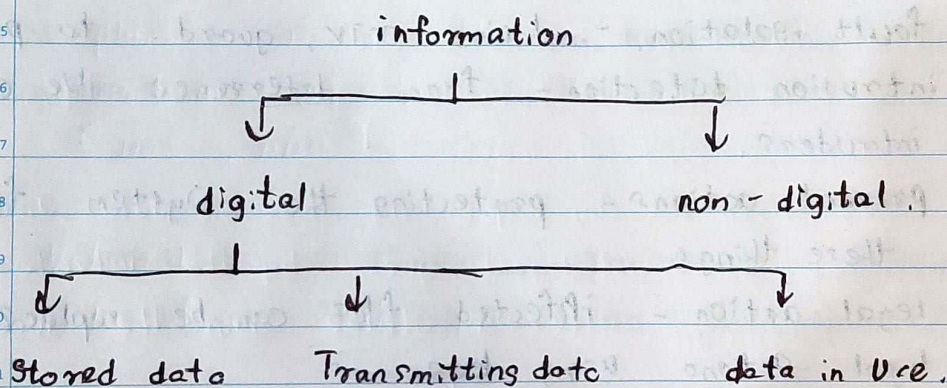 information
digital non-digital.
Stored data Transmitting data data in Use.